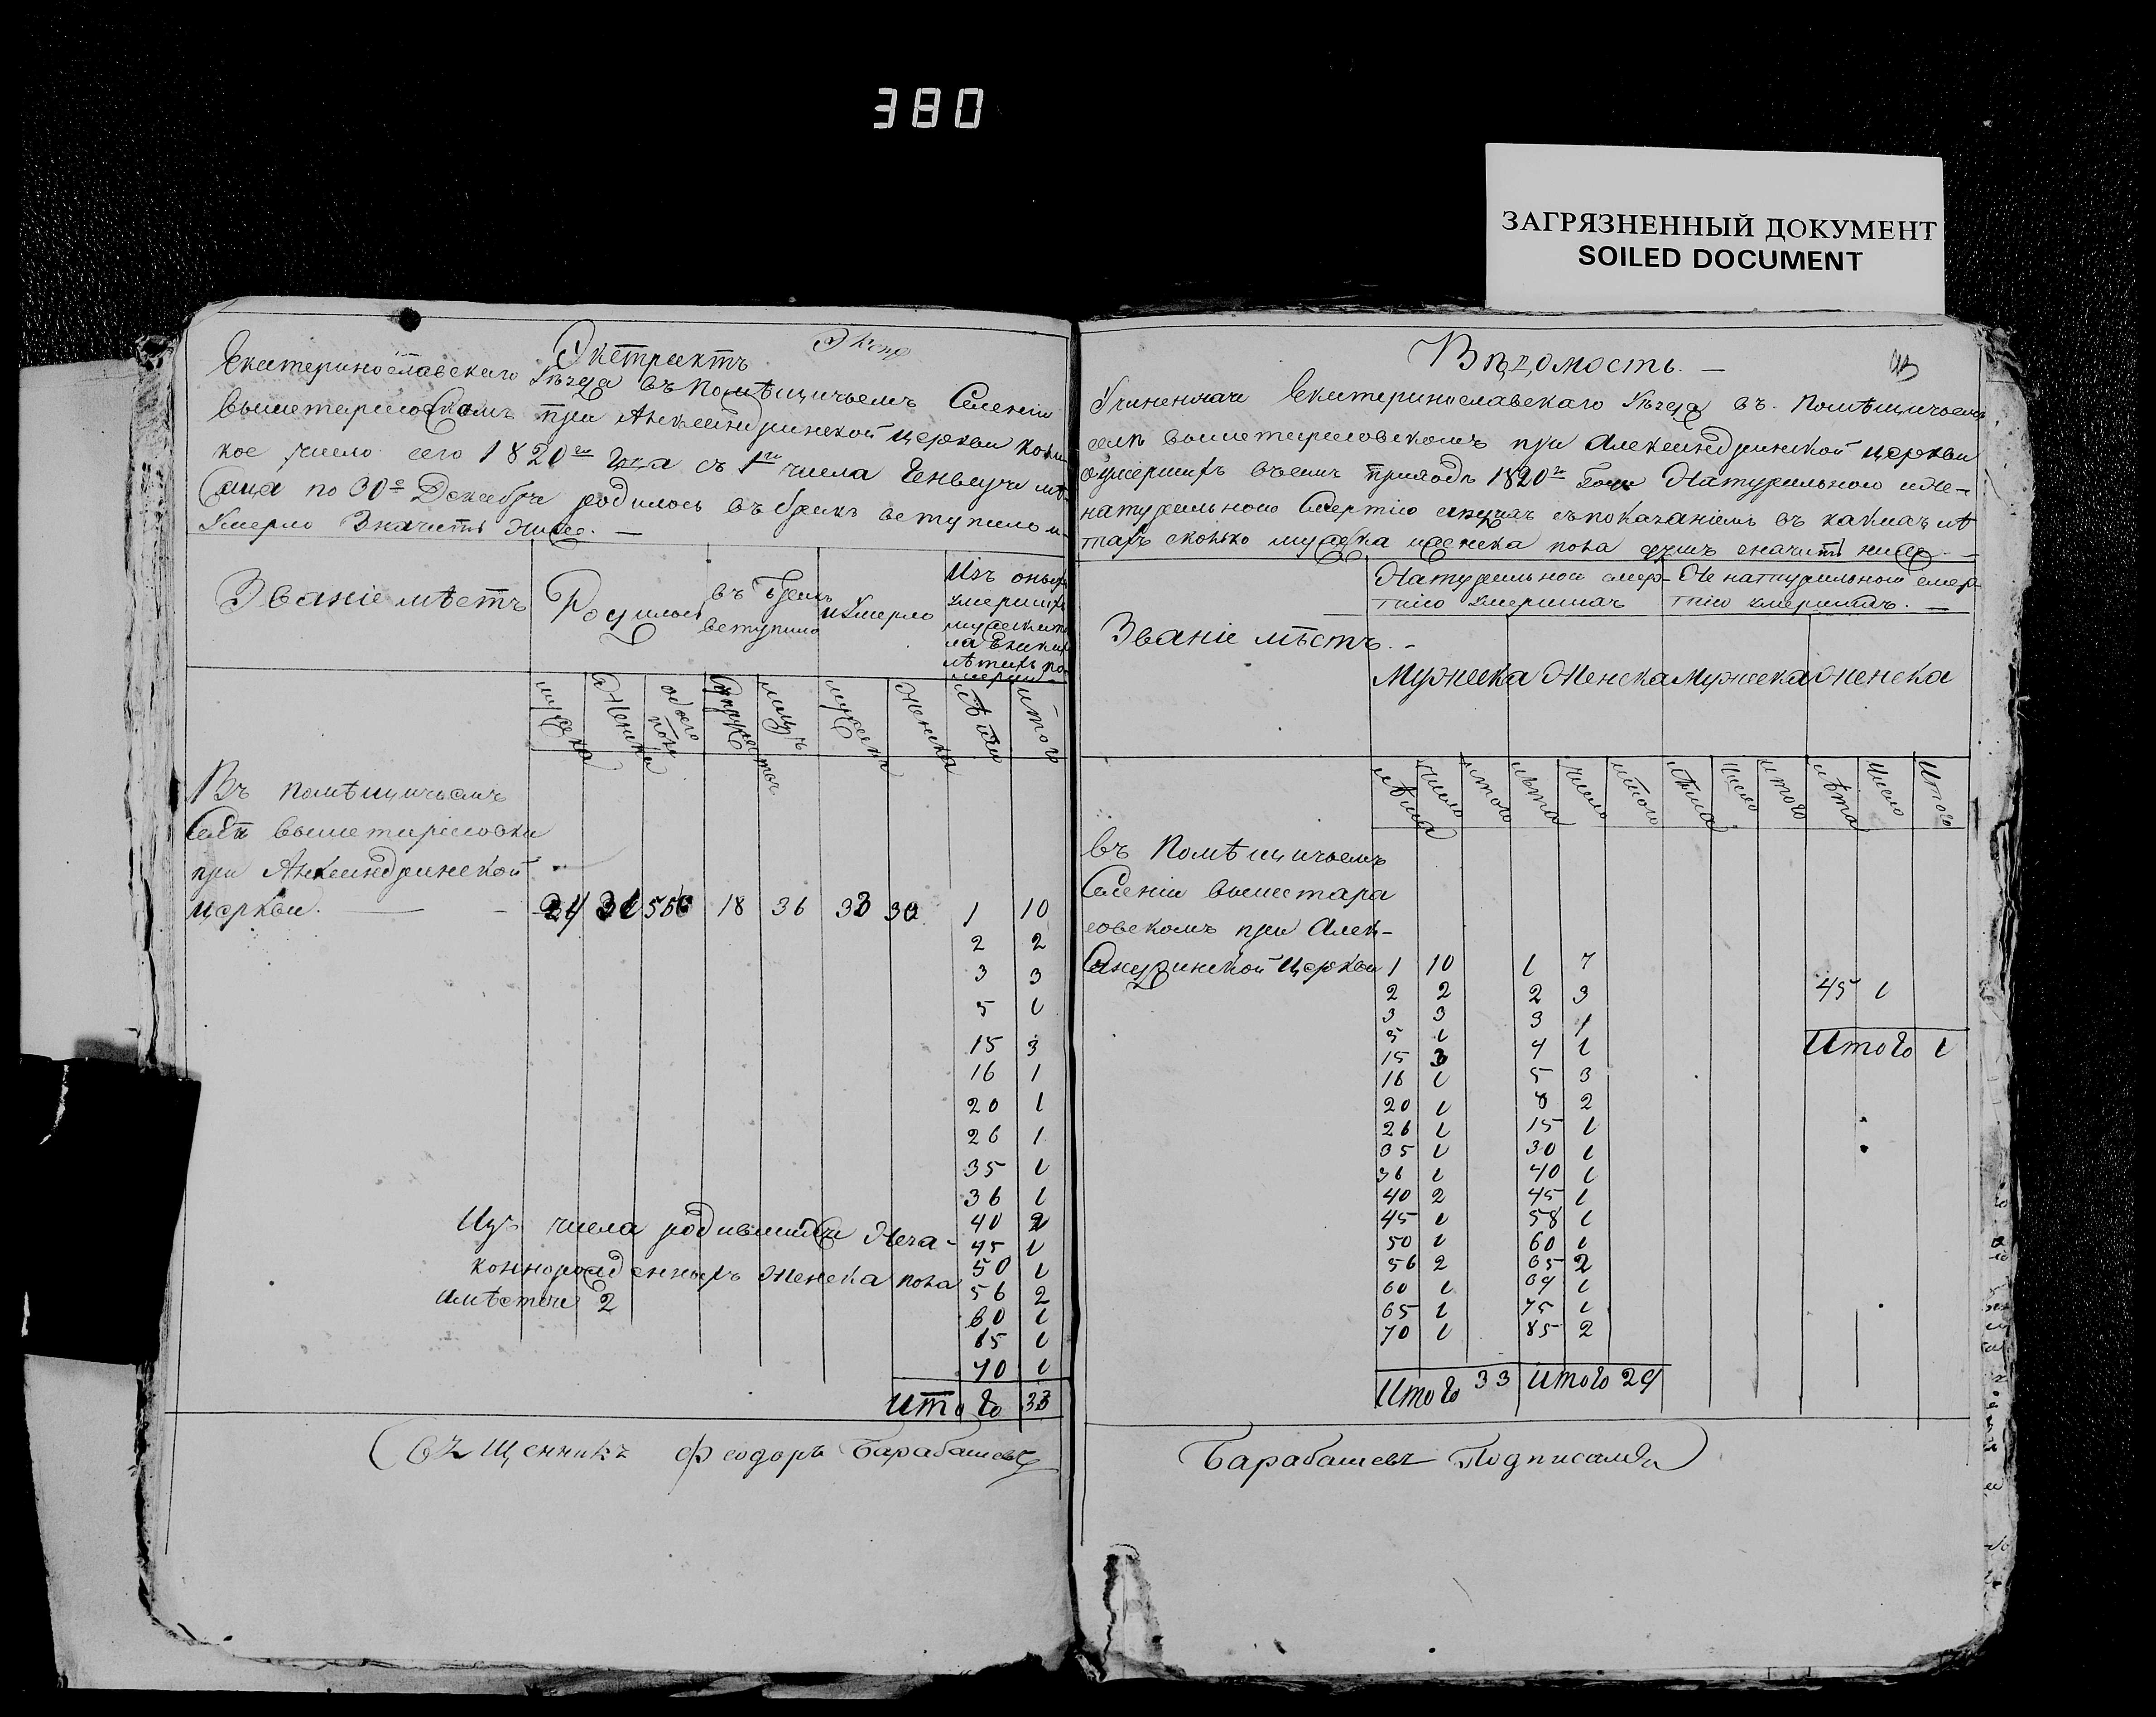 380
ЗАГРЯЗНЕННЫЙ ДОКУМЕНТ
SOILED DOCUMENT
Экстрактъ
Екатеринославскаго Уѣзда въ Помѣщичьемъ Селеніи
вышетарасовскомъ при Александринской церкви
кое число сего 1820го Года съ 1го числа Генваря мѣ
сяца по 30е Декабря родилось въ бракъ вступило и
Умерло Значитъ Ниже. —
Званіе мѣстъ
Родилось
въ Бракъ вступило
и Умерло
Изъ оныхъ
умершихъ
мужеска по
ла
мужеска
Женска
обоего пола
лицъ
мужеска
Женска
лѣта
итого
Въ помѣщичьемъ
Селѣ вышетарасовки
при Александринской
церкви. 24 31 55 18 36 33 30 1 10
2 2
3 3
5 1
15 3
16 1
20 1
26 1
35 1
36 1
40 2
45 1
50 1
56 2
60 1
65 1
70 1
Изъ числа родившихся Неза-
коннорожденныхъ женска пола
2
Итого 33
Священникъ Феодоръ Барабашевъ
Вѣдомость. —
Учиненная Екатеринославскаго Уѣзда въ Помѣщичьемъ
селѣ вышетарасовскомъ при Александринской церкви
о умершихъ въ семъ приходѣ 1820го Года Натуральною и Не-
натуральною Смертію съ показаніемъ въ какихъ лѣ
тахъ сколько мужеска и женска пола душъ значитъ ниже. —
Званіе мѣстъ. -
Натуральною смер-
тію умершихъ
Не натуральною смер
тію умершихъ. —
Мужеска Женска Мужеска Женска
лѣта число итого лѣта число итого лѣта число итого лѣта число Итого
въ Помѣщичьемъ
Селеніи вышетара
совскомъ при Алек-
сандринской церкви 1 10 1 7
2 2 2 3 45 1
3 3 3 1
5 1 4 1 Итого 1
15 3 5 3
16 1 8 2
20 1 15 1
26 1 30 1
35 1 40 1
36 1 45 1
40 2 58 1
45 1 60 1
50 1 65 2
56 2 69 1
60 1 75 1
65 1 85 2
70 1
Итого 33 Итого 29
Барабашевъ Подписался